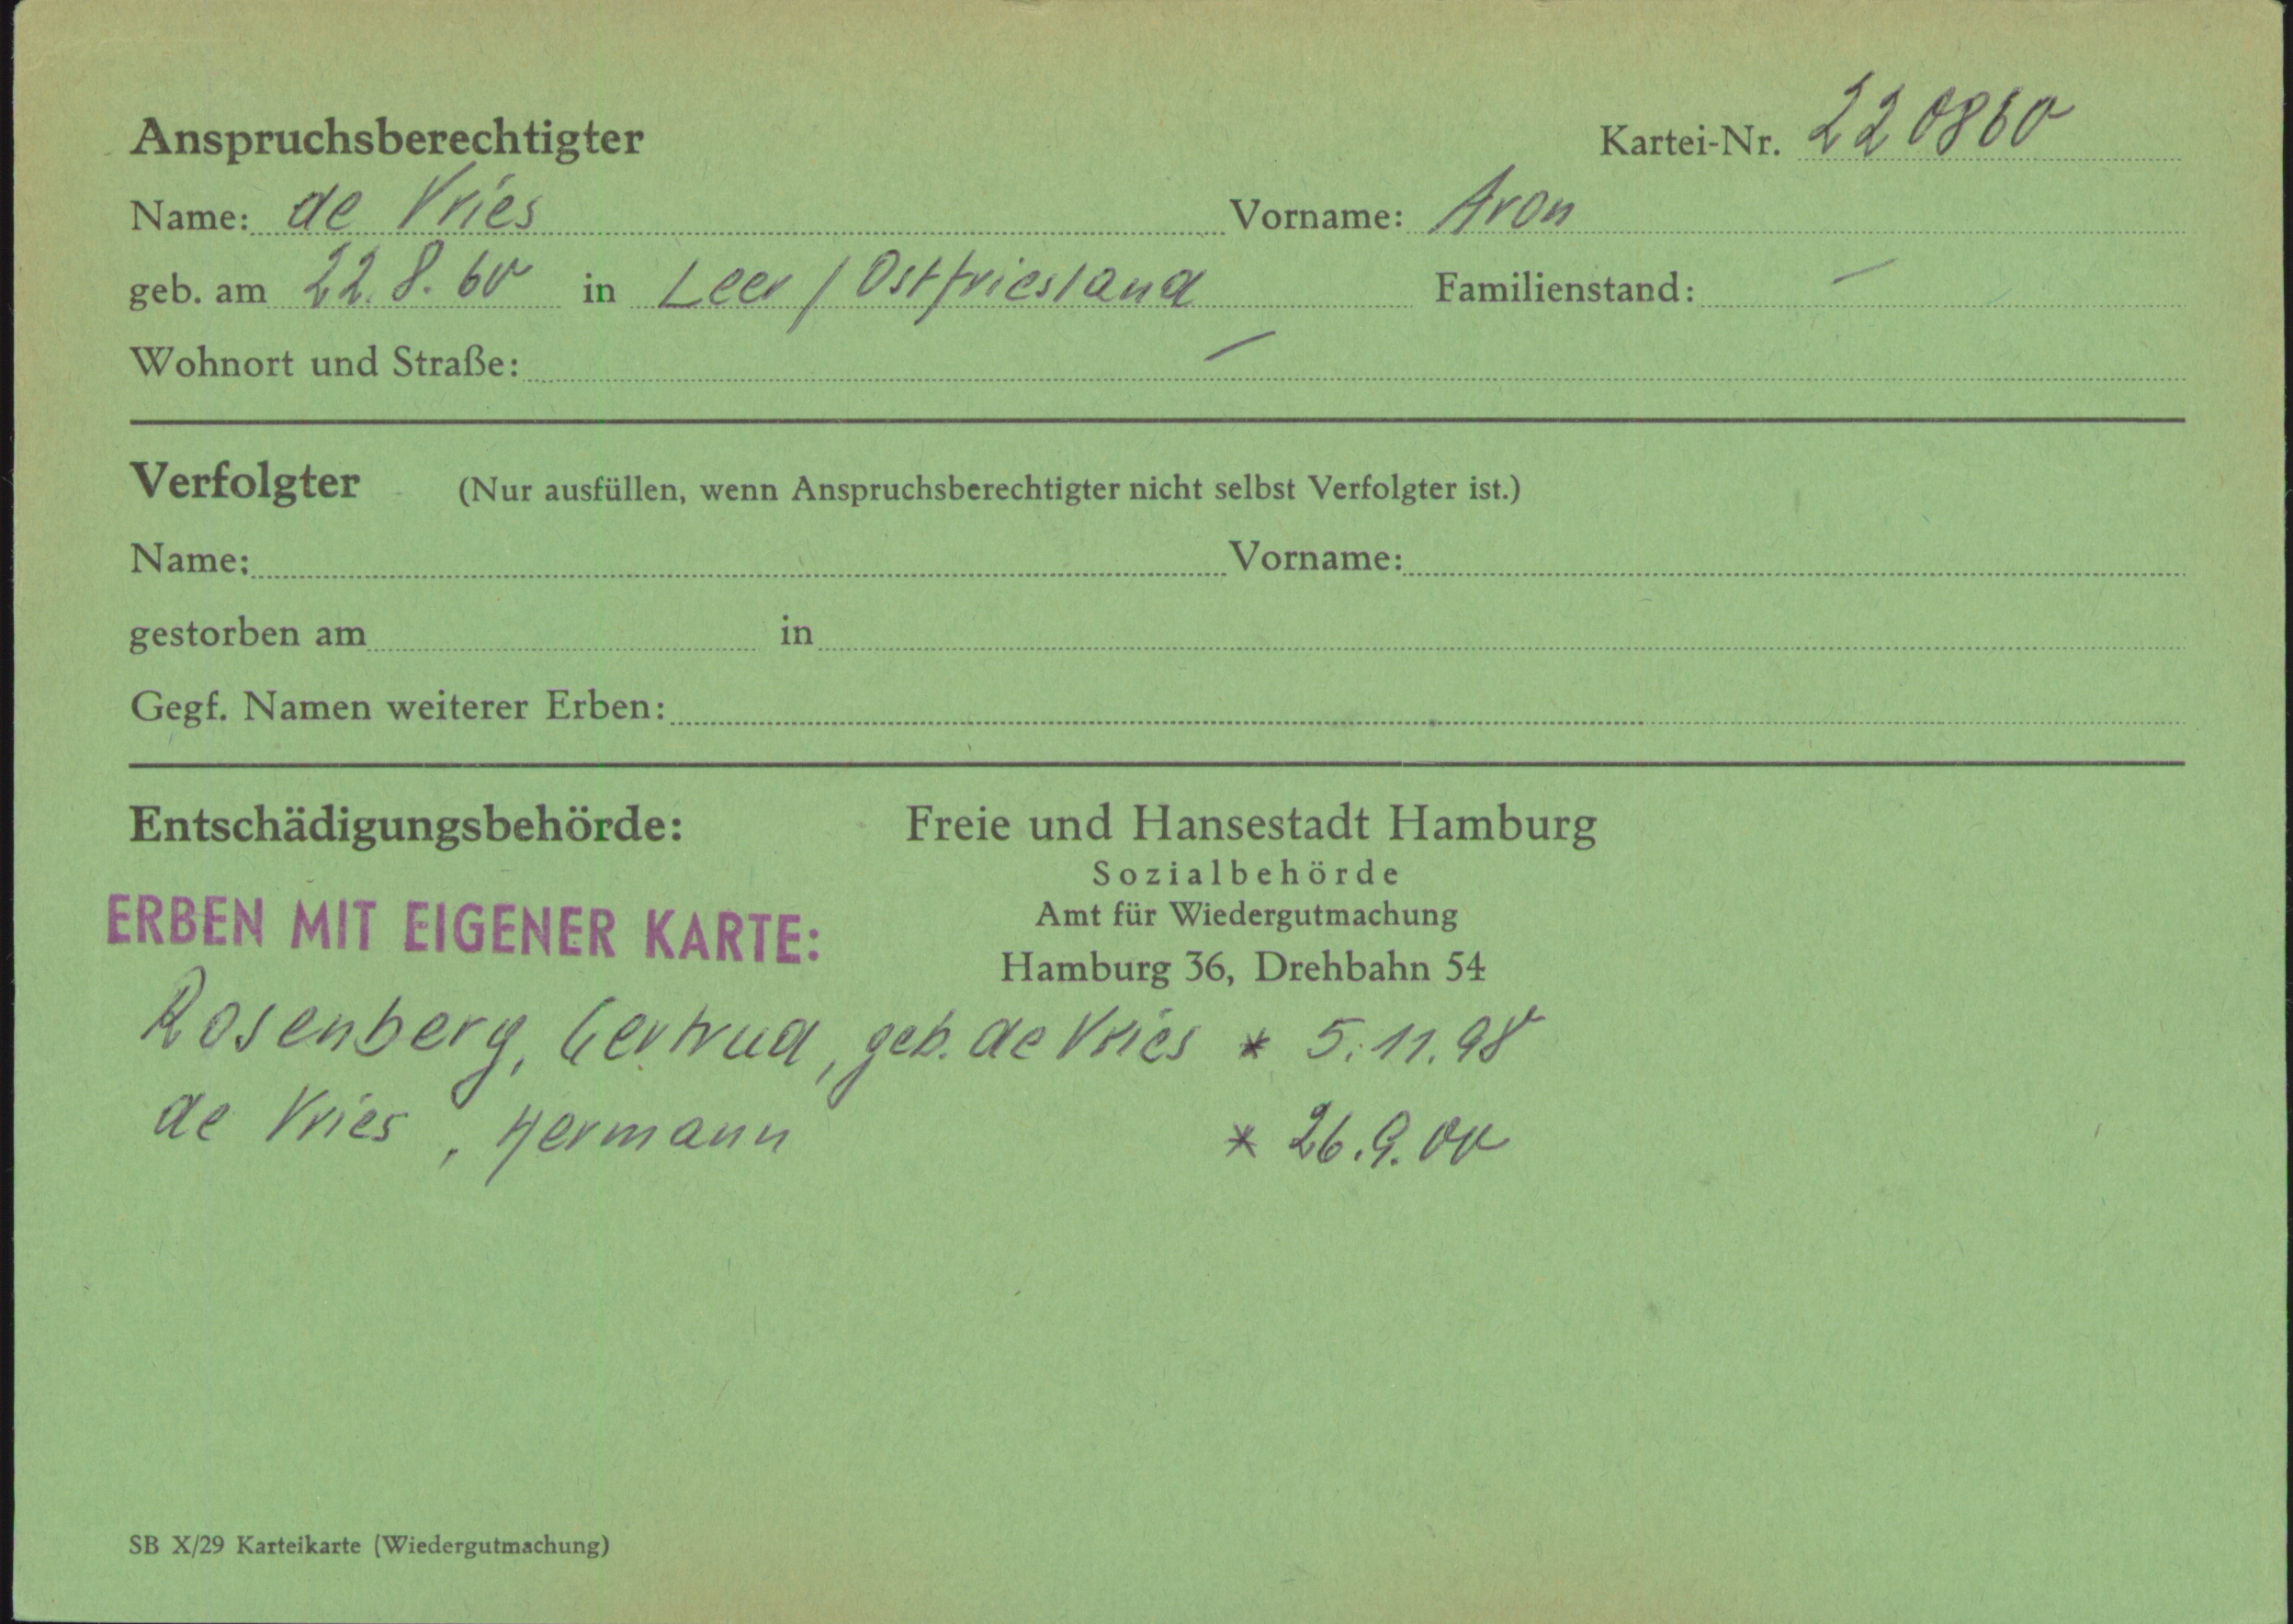 Anspruchsberechtigter Kartei-Nr. 220860
Name: de Vries Vorname: Aron
geb. am 22.8.60 in Leer / Ostfriesland Familienstand: —
Wohnort und Straße: —
Verfolgter (Nur ausfüllen, wenn Anspruchsberechtigter nicht selbst Verfolgter ist.)
Name: Vorname:
gestorben am in
Gegf. Namen weiterer Erben:
Entschädigungsbehörde: Freie und Hansestadt Hamburg
Sozialbehörde
Amt für Wiedergutmachung
Hamburg 36, Drehbahn 54
ERBEN MIT EIGENER KARTE:
Rosenberg, Gertrud, geb. de Vries * 5.11.98
de Vries, Hermann * 26.9.00
SB X/29 Karteikarte (Wiedergutmachung)